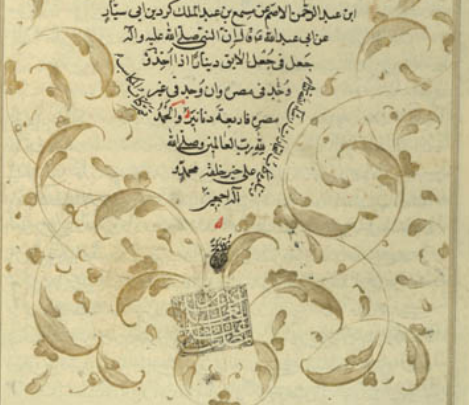 ابن عبد الرحمن الاصم عن مسمع بن عبد الملك كردين ابى سيار
عن ابى عبد الله ع قال ان النبى صلى الله عليه وآله
جعل فى جعل الابق دينارا اذا اخذ و
وجد فى مصره وان وجد فى غير
مصره فاربعة دنانير والحمد
لله رب العالمين وصلى الله
على خير خلقه محمد و
آله اجمعين